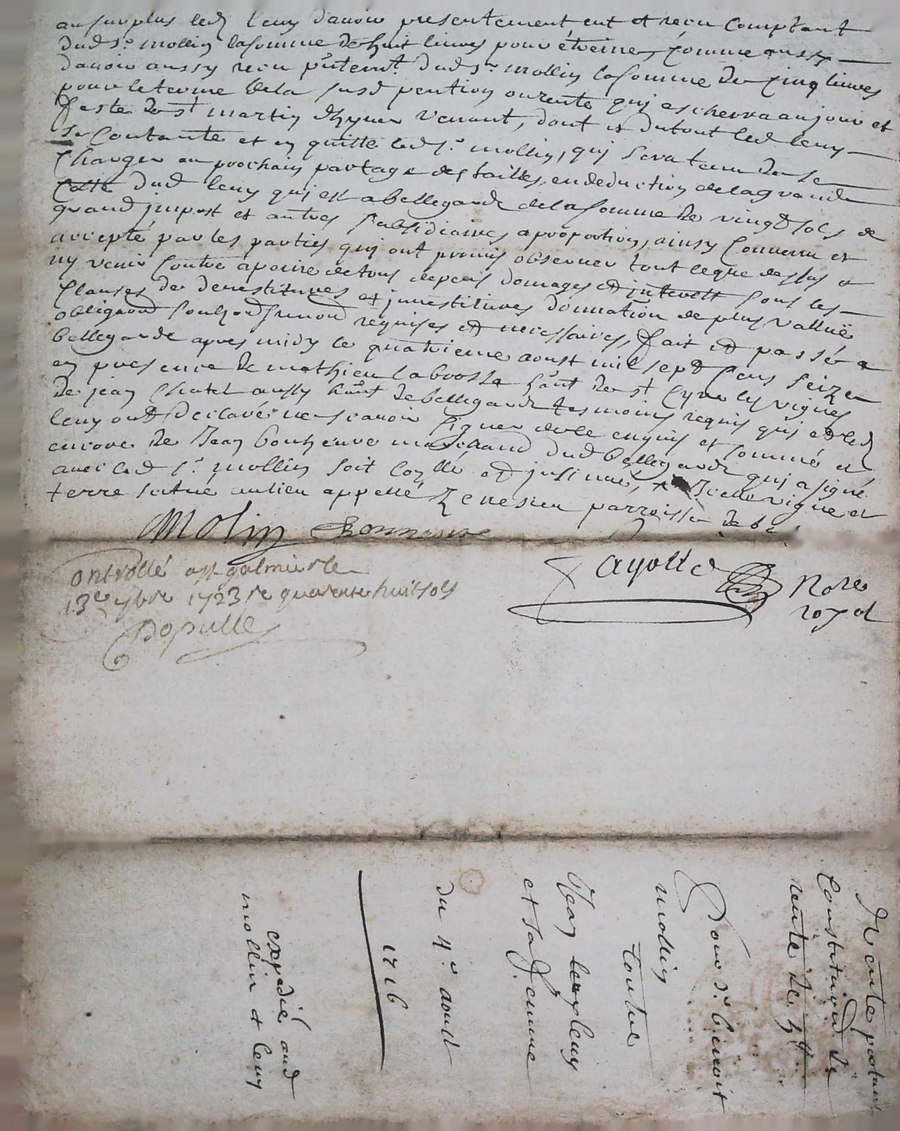 au surplus led leuy davoir presentement eut et recu Comptant
dud sr mollin la somme de huit liures pour étreine, Comme aussy
davoir aussy recu pntemt dud sr mollin la somme de Cinq liures
pour le terme de la susd pention ou rente qui eschera au jour et
feste de st martin dhyuer venant, dont et du tout led leuy
se Contante et en quitte led sr mollin, qui sera tenu de se
Charger au prochain partage des tailles, en deduction de la grande
Cotte dud leuy qui est a bellegarde de la somme de vingt sols de
grand impost et autres subsidiaires a proportion, ainsy Conuenu et
accepté par les parties qui ont promis obseruer tout ce que dessus et
ny venir Contre a peine de tous depens domages et interest sous les
Clauses de deuestitures et inuestitures donnation de plus vallue
obligaons soubzons renonons requises et necessaires, fait et passé a
bellegarde apres midy le quatrieme aoust mil sept Cens seize
en presence de mathieu labosse hant de st Cyre les vignes
de jean Chatel aussy hant de bellegarde tesmoins requis qui et led
leuy ont declaré ne scauoir signer de ce enquis et sommé et
encore de Jean bonheure marchand dud bellegarde qui a signé
auec led sr mollin soit
terre scitué au lieu appellé parroisse de
Molin Bonneure
ontrollé a st galmier le
13e 1723 re quarante huit sols
Populle
Note
royal
Vente portant
Constitution de
rente de 5lt
Pour sr benoit
mollin
Contre
Jean leuy
et sa femme
du 4e aoust
1716
expedié aud
mollin et leuy